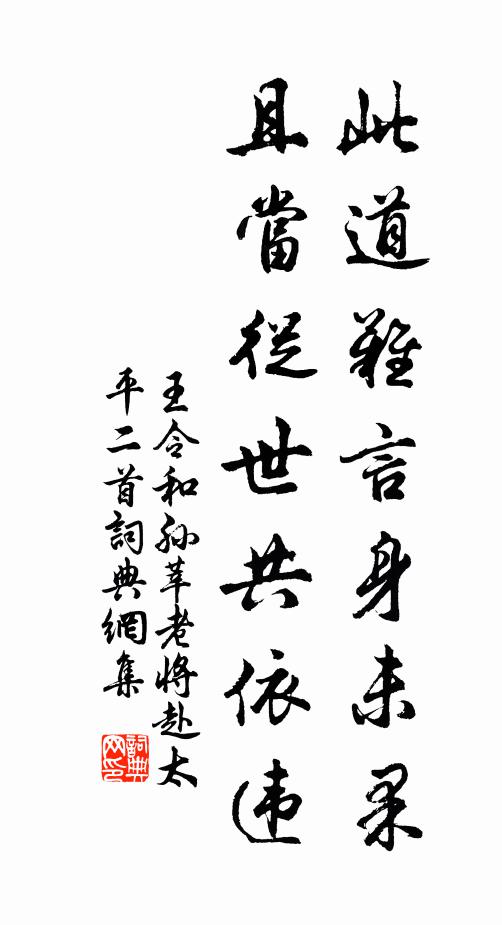 此道難言身未果
且當從世共依违
王令和孫莘老將赴太
平二首詞典網集
詞典
网印